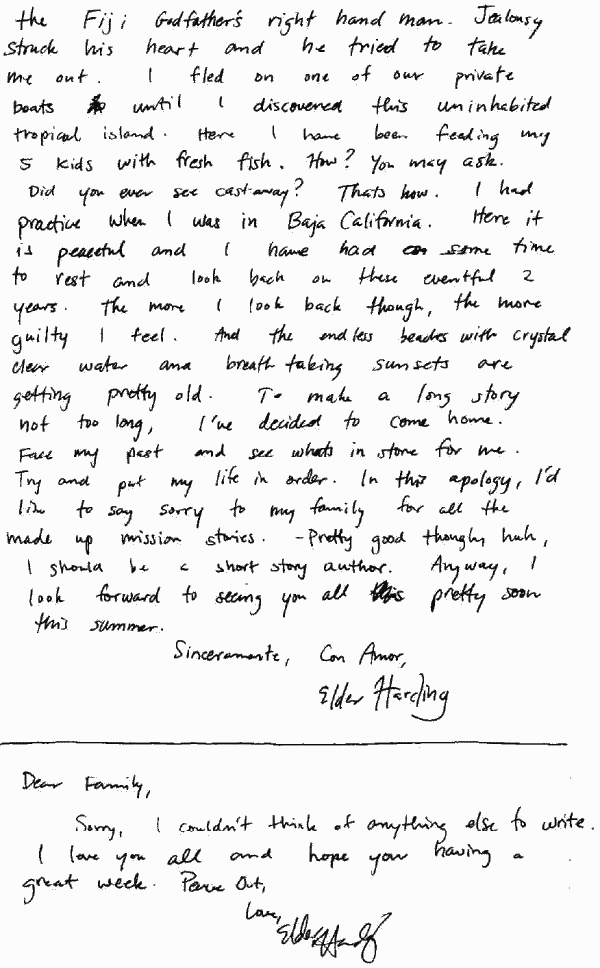 the Fiji Godfather's right hand man. Jealousy
struck his heart and he tried to take
me out. I fled on one of our private
boats until I discovered this uninhabited
tropical island. Here I have been feeding my
5 kids with fresh fish. How? You may ask.
Did you ever see castaway? Thats how. I had
practice when I was in Baja California. Here it
is peaceful and I have had some time
to rest and look back on these eventful 2
years. The more I look back though, the more
guilty I feel. And the endless beaches with crystal
clear water and breath taking sunsets are
getting pretty old. To make a long story
not too long, I've decided to come home.
Face my past and see whats in store for me.
Try and put my life in order. In this apology, I'd
like to say sorry to my family for all the
made up mission stories. -Pretty good though, huh,
I should be a short story author. Anyway, I
look forward to seeing you all pretty soon
this summer.
Sinceramente, Con Amor,
Elder Harding
Dear Family,
Sorry, I couldn't think of anything else to write.
I love you all and hope your having a
great week. Peace Out,
Love,
Elder Harding